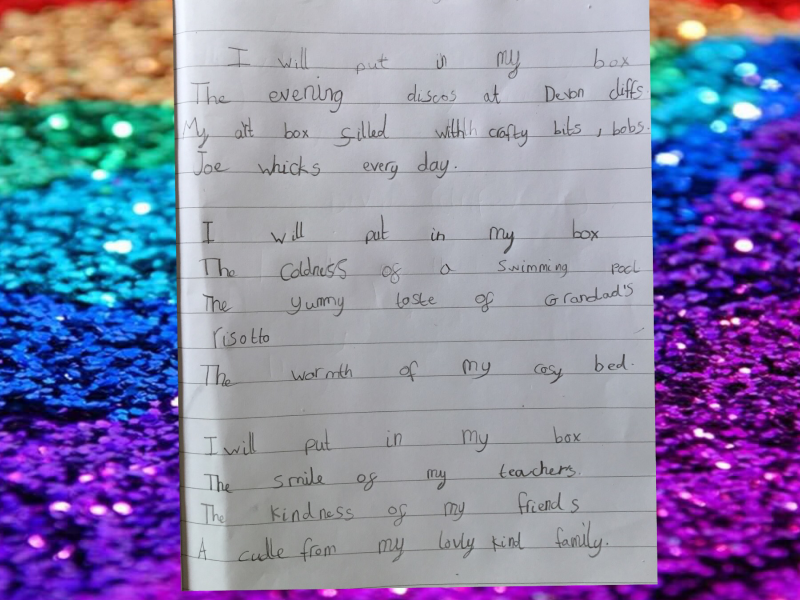 I will put in my box
The evening discos at Devon cliffs.
My art box filled withh crafty bits, bobs.
Joe whicks every day.
I will put in my box
The coldness of a swimming pool
The yummy taste of Grandad's
risotto
The warmth of my cosy bed.
I will put in my box
The smile of my teachers.
The kindness of my friends
A cudle from my lovly kind family.